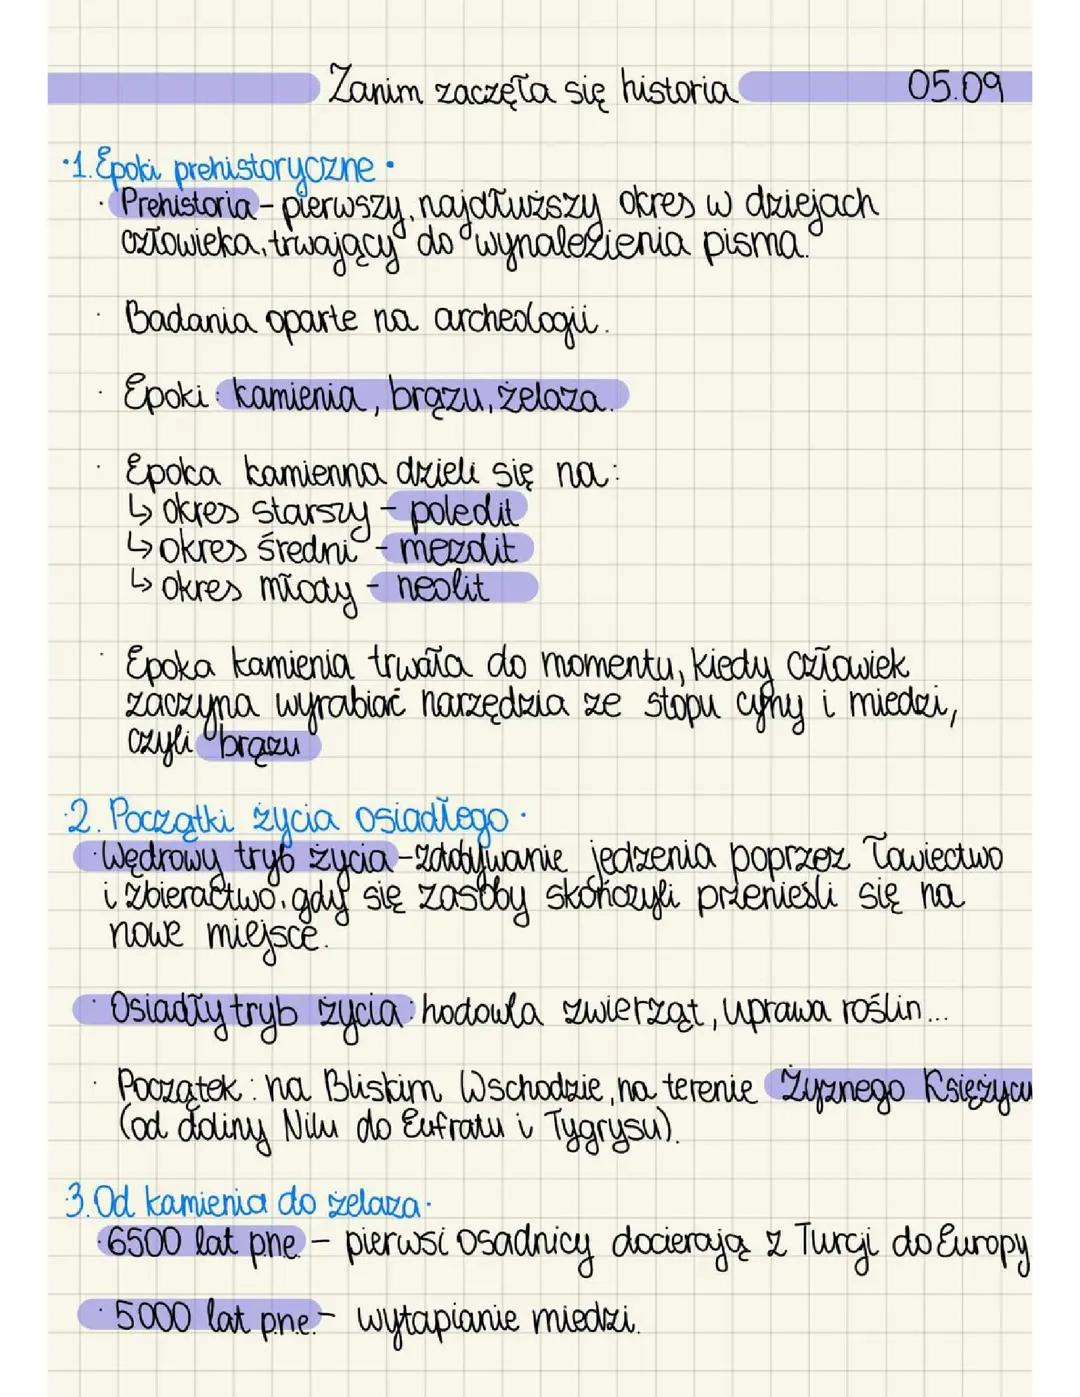 Zanim zaczęła się historia 05.09
·1. Epoki prehistoryczne ·
· Prehistoria - pierwszy, najdłuższy okres w dziejach
człowieka, trwający do wynalezienia pisma.
· Badania oparte na archeologii.
· Epoki: kamienia, brązu, żelaza.
· Epoka kamienna dzieli się na:
↳ okres starszy - paleolit
↳ okres średni - mezolit
↳ okres młody - neolit
· Epoka kamienia trwała do momentu, kiedy człowiek
zaczyna wyrabiać narzędzia ze stopu cyny i miedzi,
czyli brązu
·2. Początki życia osiadłego ·
· Wędrowy tryb życia - zdobywanie jedzenia poprzez łowiectwo
i zbieractwo, gdy się zasoby skończyły przenieśli się na
nowe miejsce.
· Osiadły tryb życia: hodowla zwierząt, uprawa roślin...
· Początek: na Bliskim Wschodzie, na terenie Żyznego Księżycu
(od doliny Nilu do Eufratu i Tygrysu).
·3. Od kamienia do żelaza ·
· 6500 lat p.n.e - pierwsi osadnicy docierają z Turcji do Europy
· 5000 lat p.n.e. - wytapianie miedzi.